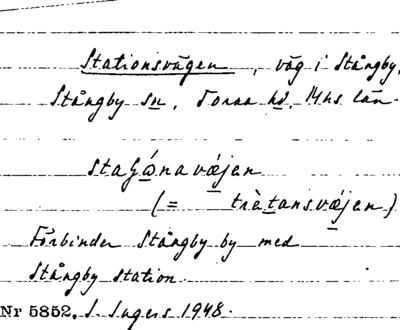 Stationsvägen, väg i Stångby,
Stångby sn, Torna hd, Mhs län
staʃǿnavǽjen
(= trètansvǽjen)
Förbinder Stångby by med
Stångby station.
Nr 5852. S. Ingers 1948.